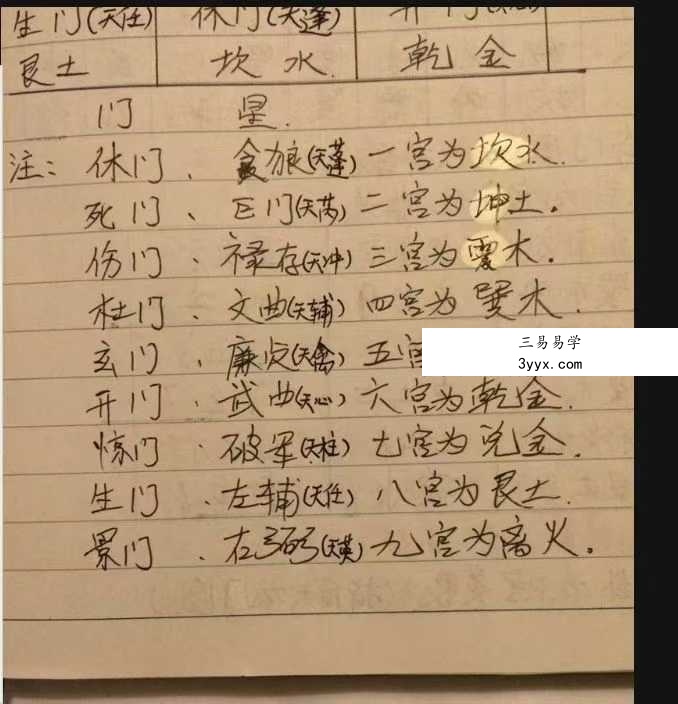 生门(天任) 休门(天蓬) 开门
艮土 坎水. 乾金
门 星.
注: 休门、贪狼(天蓬) 一宫为坎水.
死门、巨门(天芮) 二宫为坤土。
伤门、禄存(天冲) 三宫为震木.
杜门、文曲(天辅) 四宫为巽木.
玄门、廉贞(天禽) 五宫
开门、武曲(天心) 六宫为乾金.
惊门、破军(天柱) 七宫为兑金.
生门、左辅(天任) 八宫为艮土.
景门、右弼(天英) 九宫为离火。
三易易学
3yyx.com